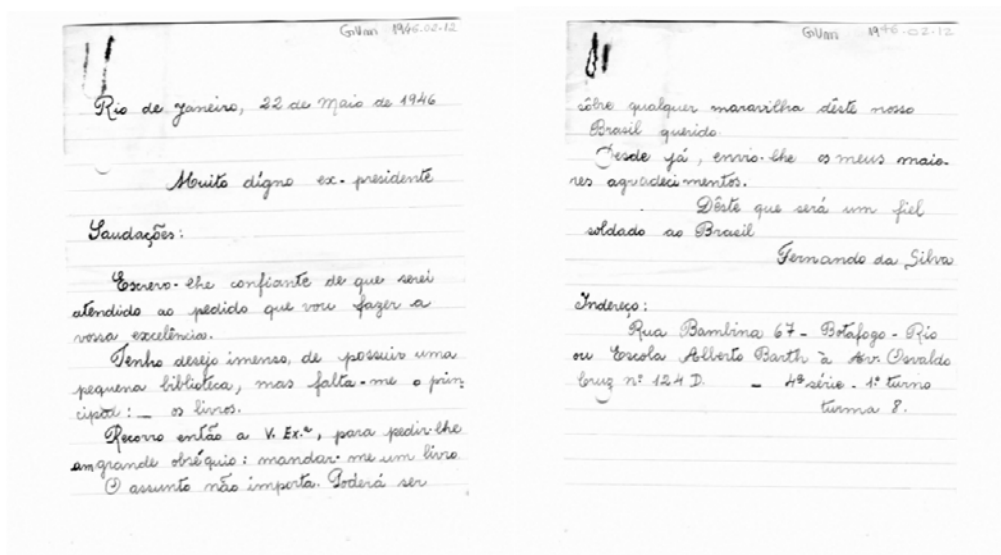 GVm 1946.02.12
Rio de Janeiro, 22 de Maio de 1946
Muito dígno ex-presidente
Saudações:
Escrevo-lhe confiante de que serei
atendido ao pedido que vou fazer a
vossa excelência.
Tenho desejo imenso, de possuir uma
pequena biblioteca, mas falta-me o prin-
cipal: _ os livros.
Recorro então a V. Ex.ª, para pedir-lhe
um grande obséquio: mandar-me um livro.
O assunto não importa. Poderá ser
GVm 1946-02.12
sôbre qualquer maravilha dêste nosso
Brasil querido.
Desde já, envio-lhe os meus maio-
res agradecimentos.
Dêste que será um fiel
soldado ao Brasil
Fernando da Silva
Indereço:
Rua Bambina 67 - Botafogo - Rio
ou Escola Alberto Barth à Av. Osvaldo
Cruz nº 124 D. - 4ª série - 1º turno
turma 8.